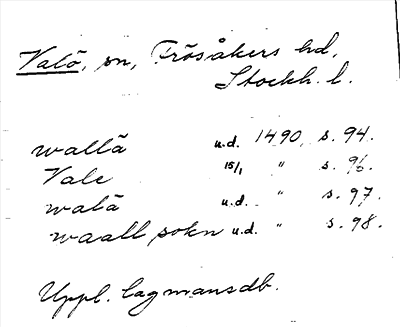 Valö, sn, Frösåkers hd,
Stockh. l.
wallä u.d. 1490, s. 94.
Vale 15/1 " s. 96.
walä u.d. " s. 97.
waall sokn u.d. " s. 98.
Uppl. lagmansdb.